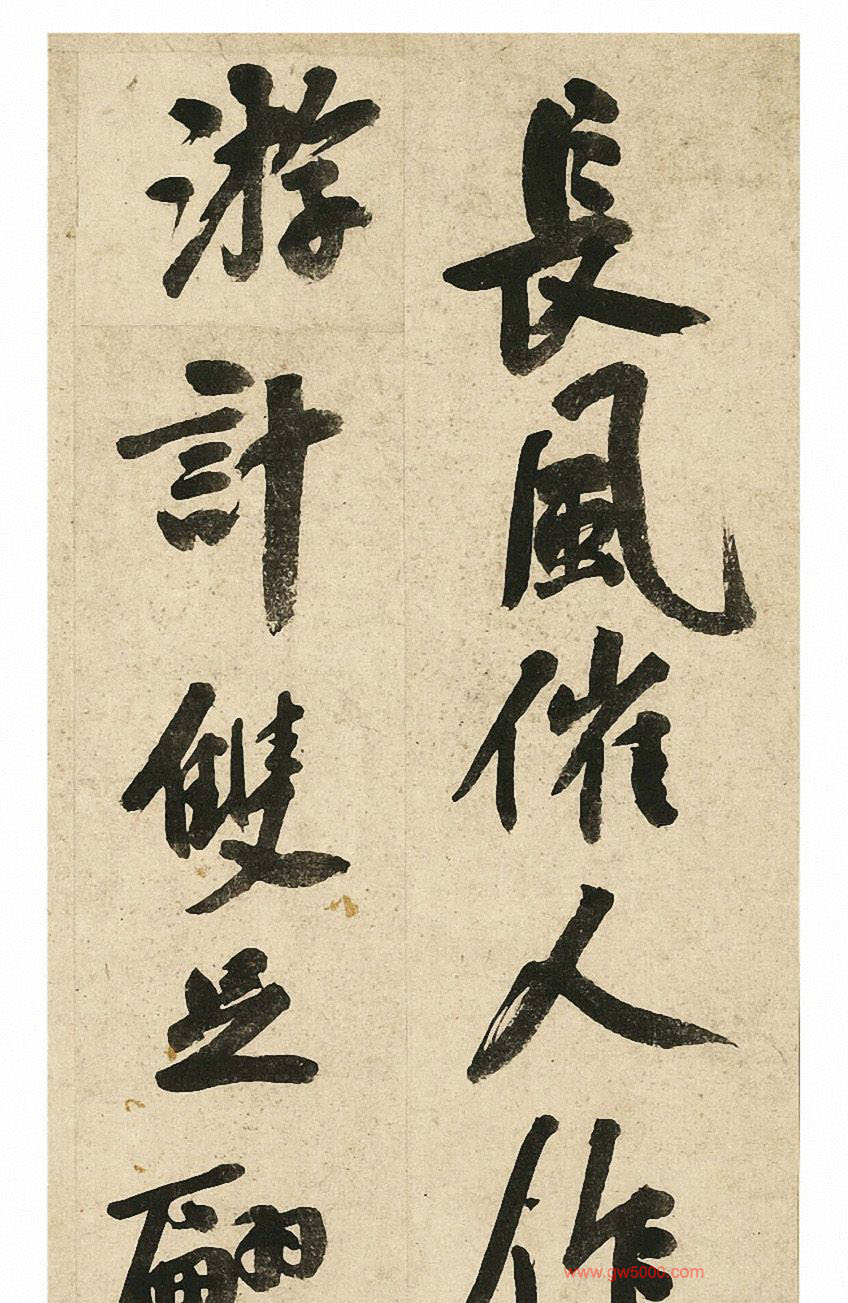 長風催人作
游計雙足翩
www.gw5000.com